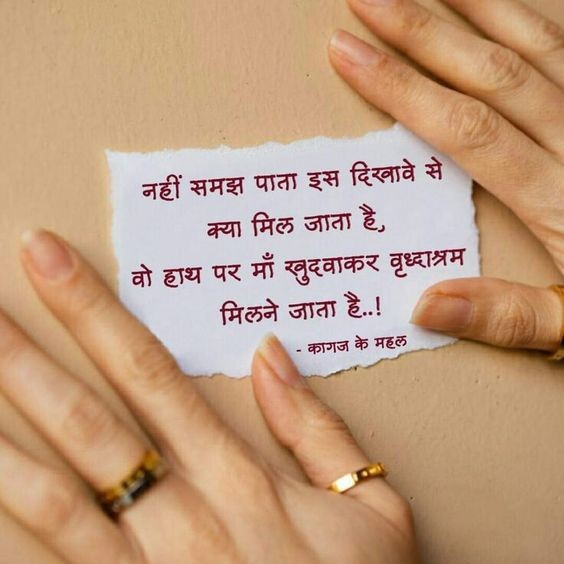 नहीं समझ पाता इस दिखावे से
क्या मिल जाता है,
वो हाथ पर माँ खुदवाकर वृध्दाश्रम
मिलने जाता है..!
- कागज के महल